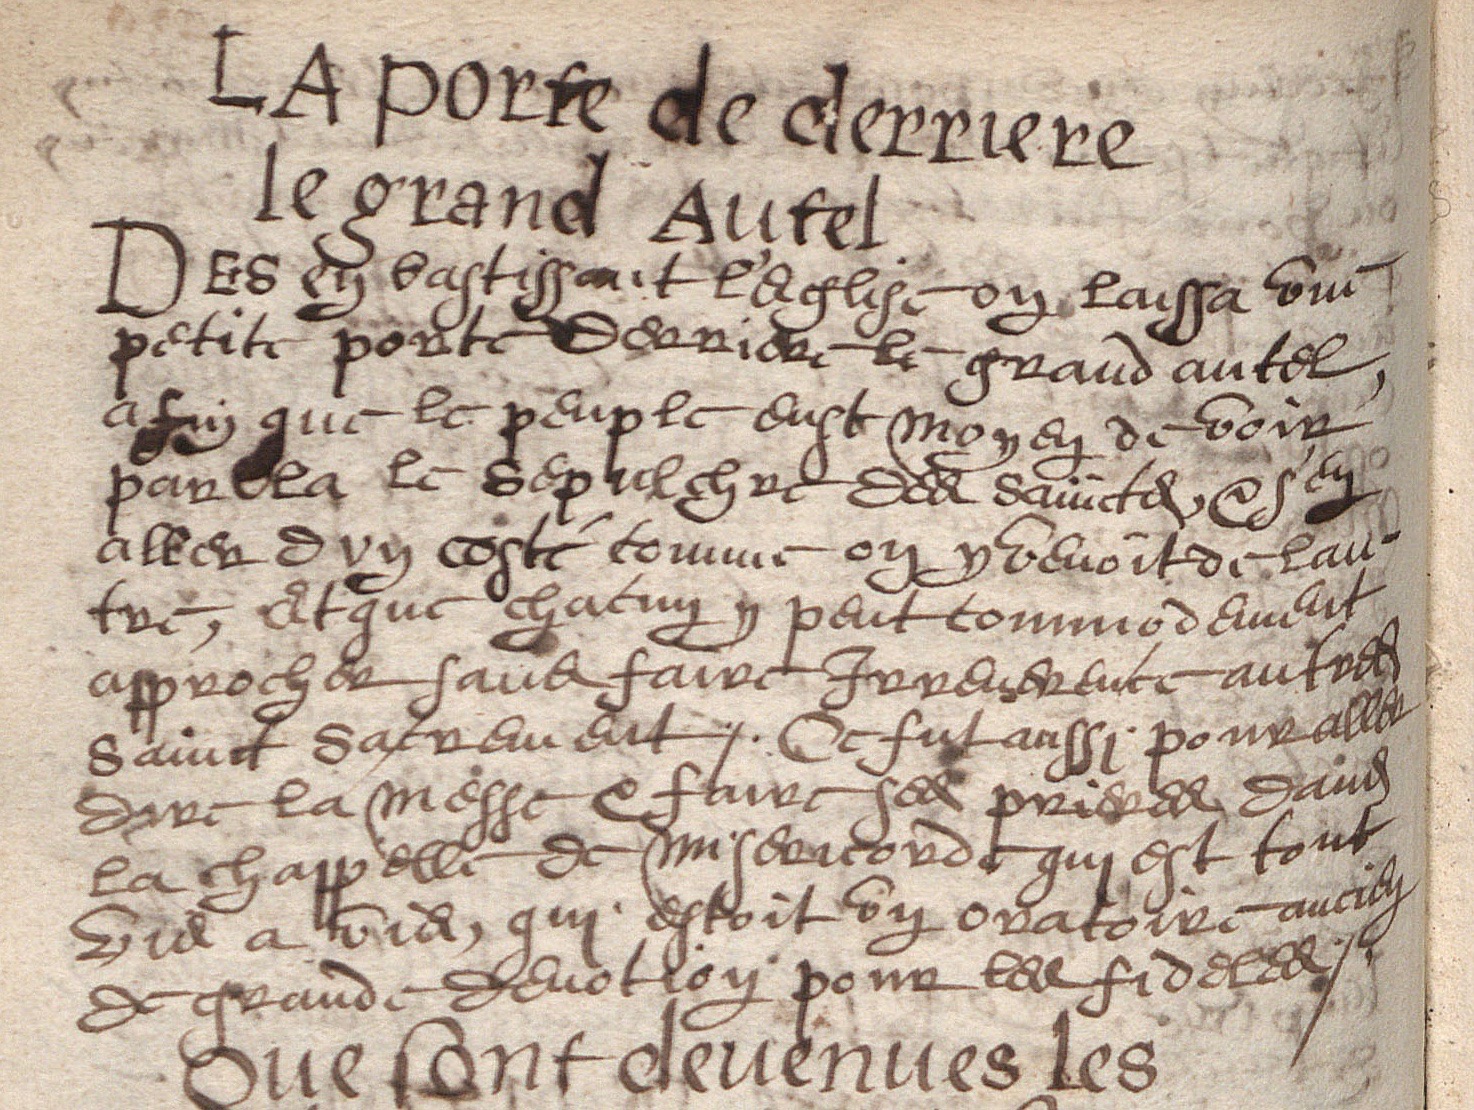 LA porte de derriere
le grand Autel
DES en bastissant l'eglise on laissa vne
petite porte derriere le grand autel,
afin que le peuple eust moyen de voir
par la le sepulchre des saincts, & s'en
aller d'vn costé comme on y venoit de lau-
tre, et que chacun y peut commodement
approcher sans faire Irreuerence au tres
sainct sacrement /. Ce fut aussi pour aller
dire la messe & faire ses prieres dans
la chappelle de misericorde qui est tout
vis a vis, qui estoit vn oratoire ancien
de grande deuotion pour les fideles /.
Que sont deuenues les